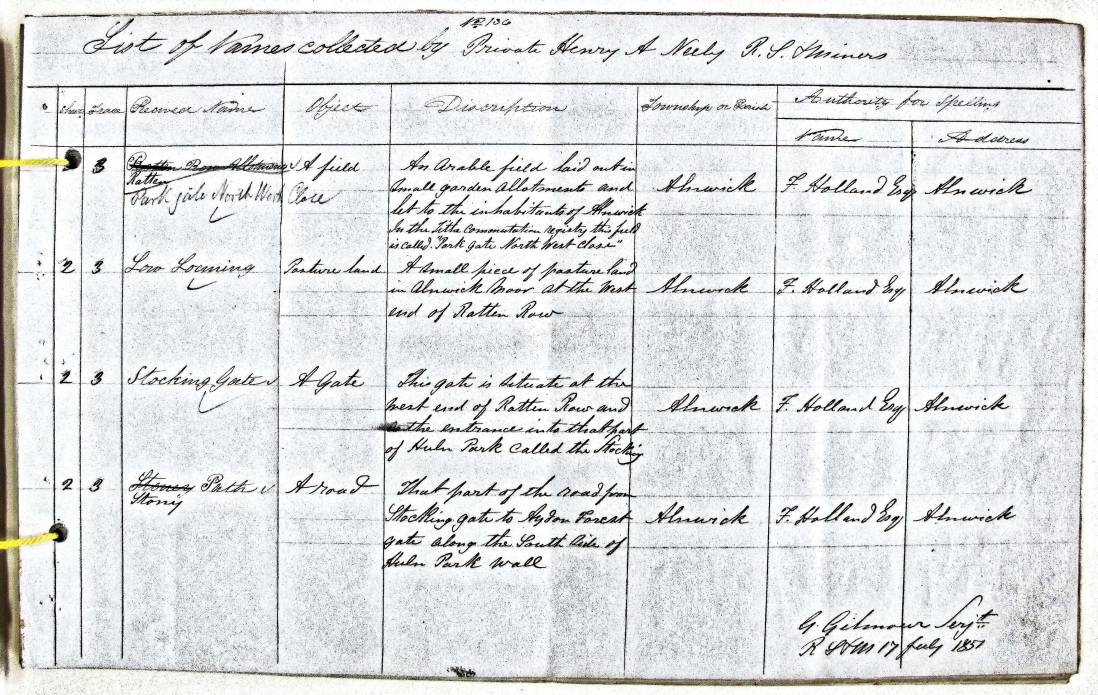 No 136
List of Names collected by Private Henry A Neely R. S. & Miners
Received Name Object Discription Township or Parish Authority for Spelling
Name Address
3 3 Ratten Row Allotments A field An arable field laid out in
Ratten
Park gate North West Close small garden allotments and Alnwick F. Holland Esq Alnwick
let to the inhabitants of Alnwick
In the Tithe commutation registry this field
is called "Park Gate North West Close"
2 3 Low Loaning Pasture land A small piece of pasture land
in Alnwick Moor at the West Alnwick F. Holland Esq Alnwick
end of Ratten Row
2 3 Stocking Gate A Gate This gate is situate at the
west end of Ratten Row and Alnwick F. Holland Esq Alnwick
the entrance into that part
of Huln Park called the Stocking
2 3 Stoney Path A road That part of the road from
Stony
Stocking gate to Aydon Forest Alnwick F. Holland Esq Alnwick
gate along the South Side of
Huln Park wall
G. Gilmour Serjt
R S & M 17 July 1851